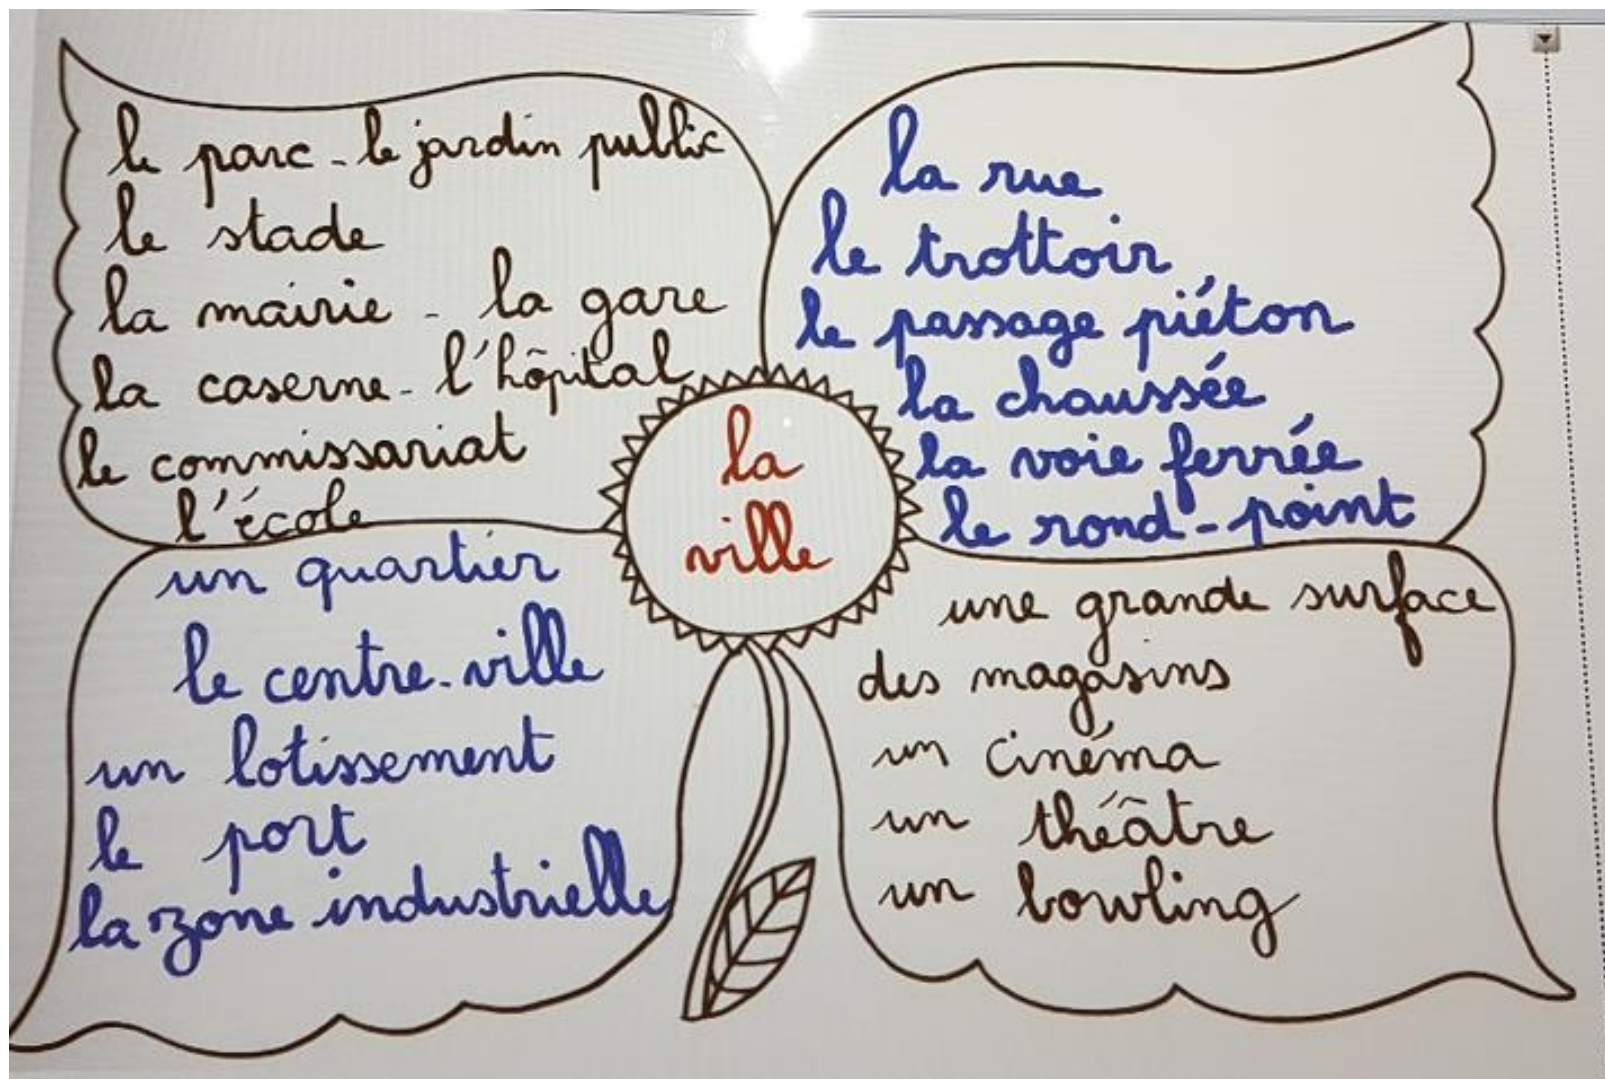 le parc - le jardin public
le stade
la mairie - la gare
la caserne - l'hôpital
le commissariat
l'école
la rue
le trottoir
le passage piéton
la chaussée
la voie ferrée
le rond-point
la
ville
un quartier
le centre-ville
un lotissement
le port
la zone industrielle
une grande surface
des magasins
un cinéma
un théâtre
un bowling